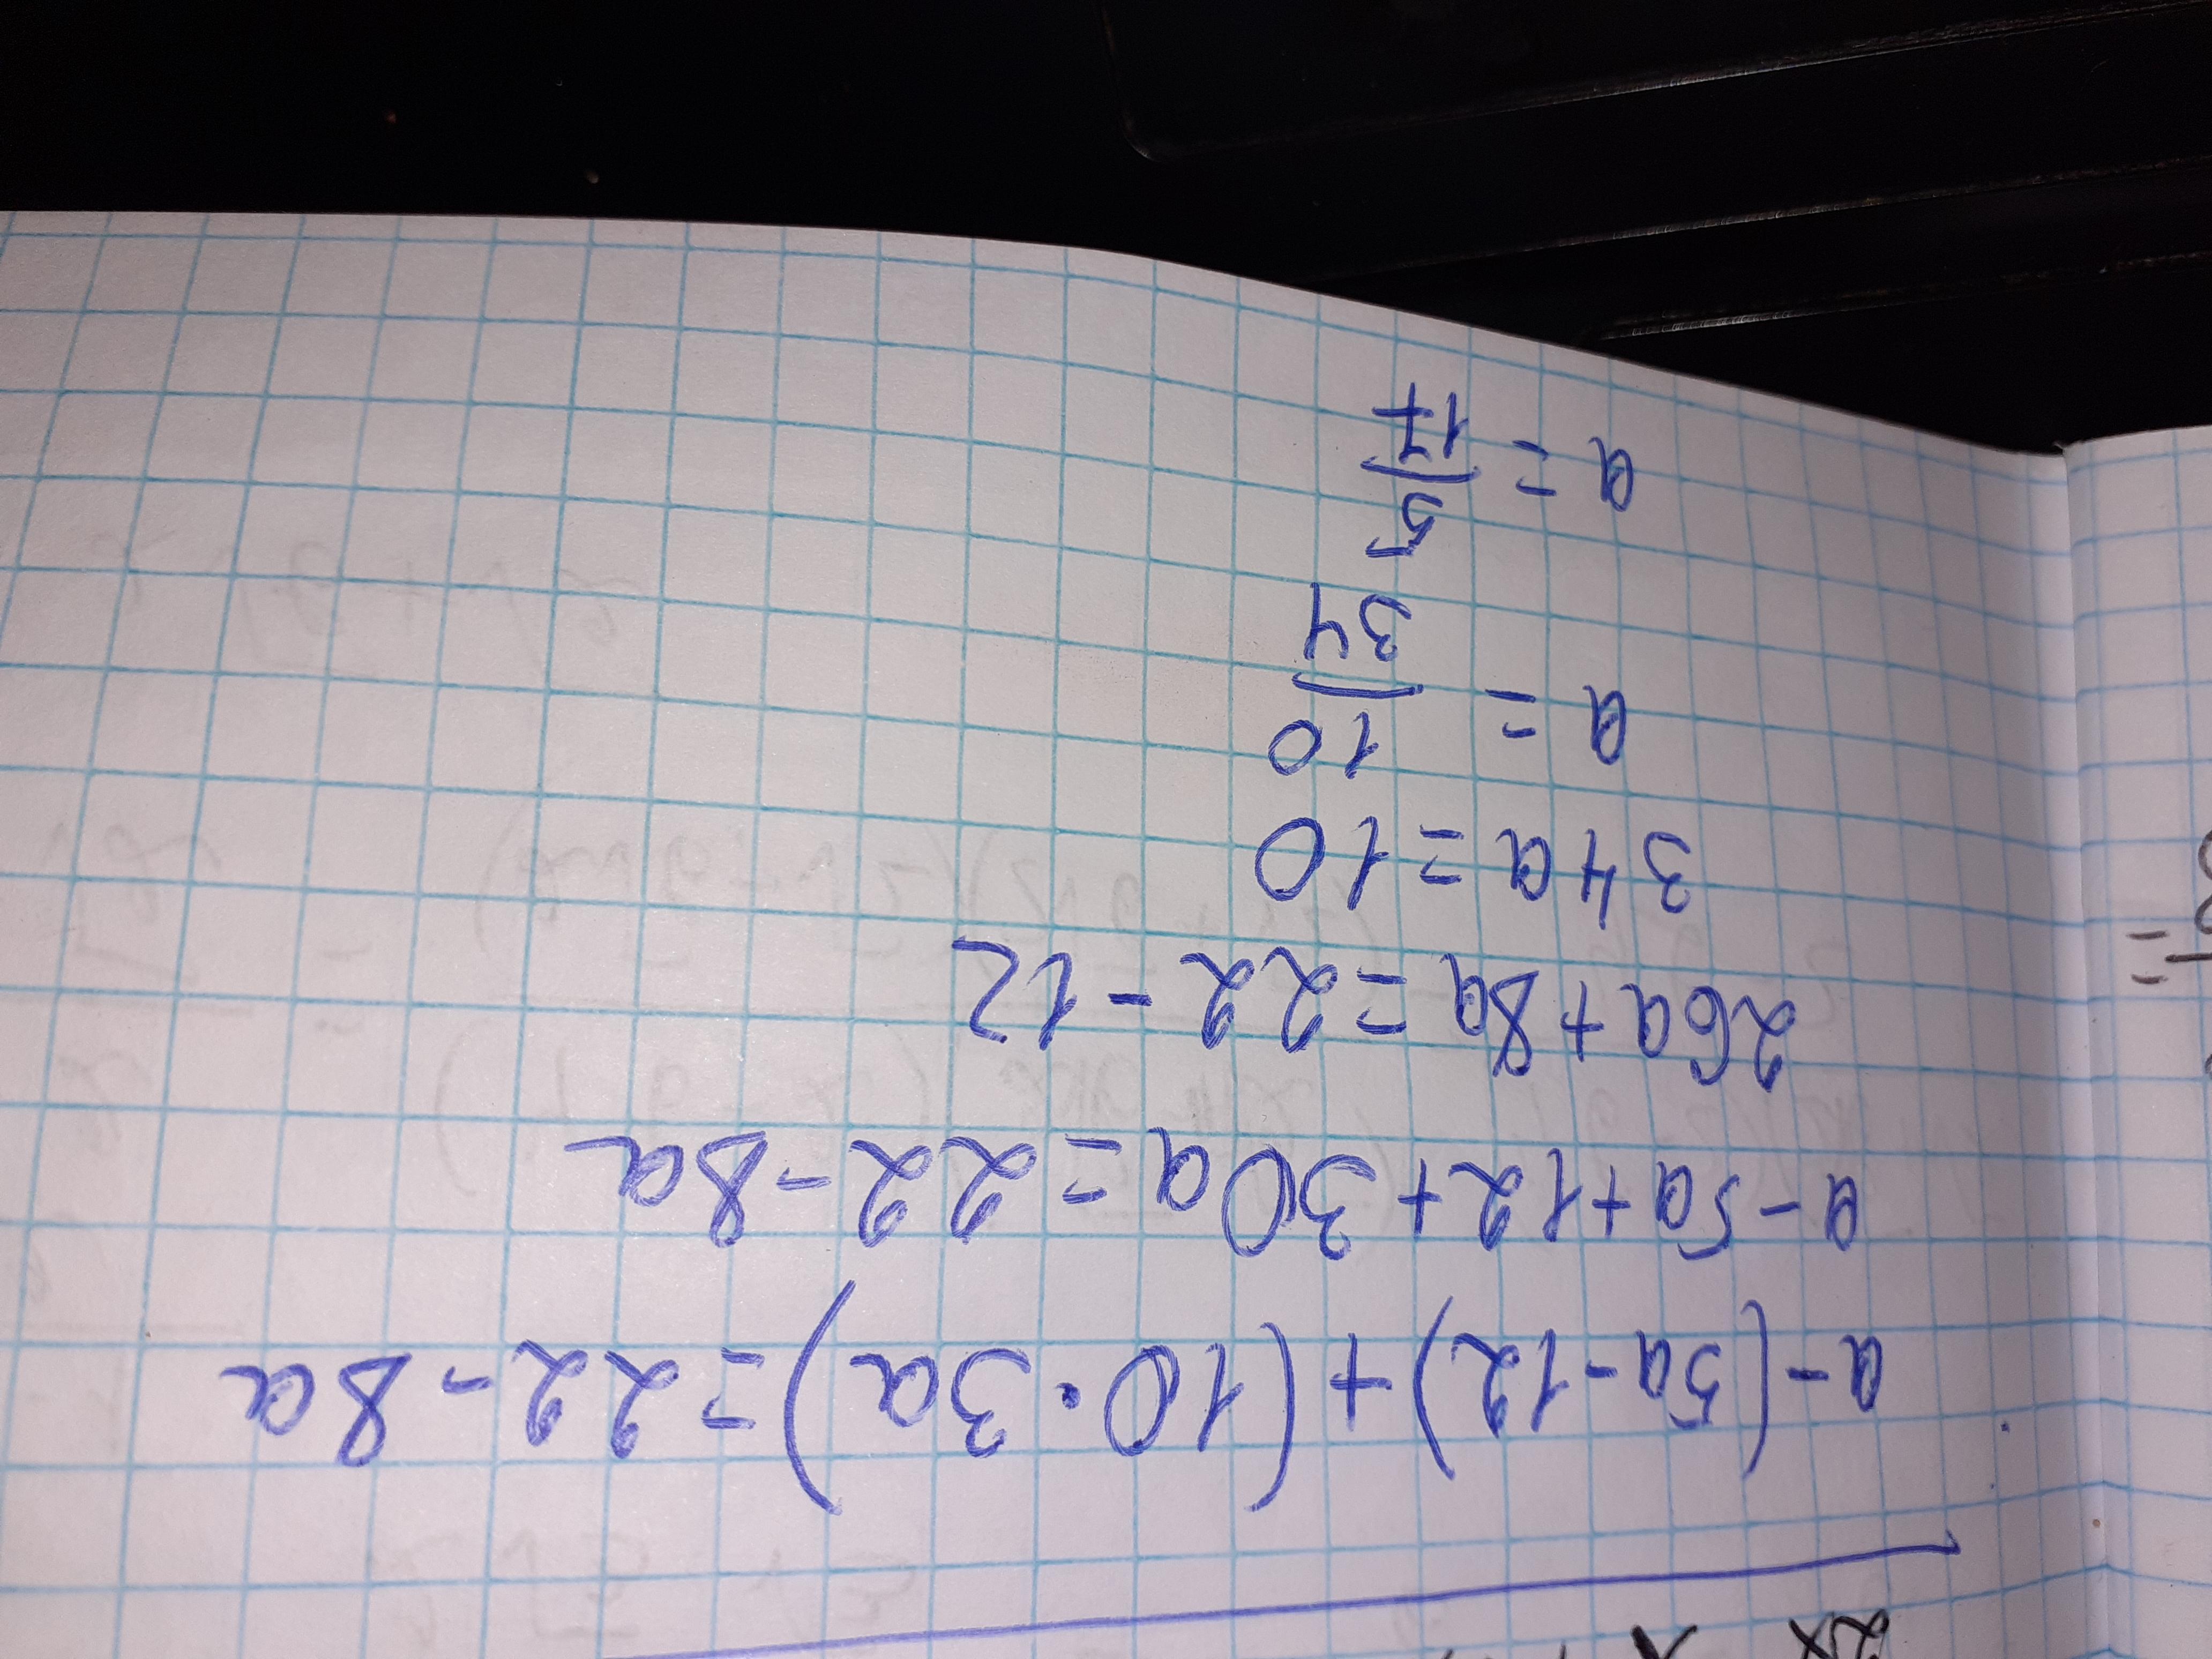 2x
a-(5a-12)+(10·3a)=22-8a
a-5a+12+30a=22-8a
26a+8a=22-12
34a=10
a = 10/34
a = 5/17